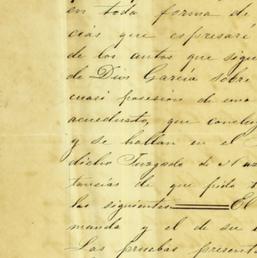 en toda forma de
cias que espresaré
de los autos que sigu
de Dios García sobre
cuasi posesion de una
acueducto, que concluy
y se hallan en el
dicho Juzgado de
tancias de que pido
las siguientes═══El
manda y el de su
Las pruebas present